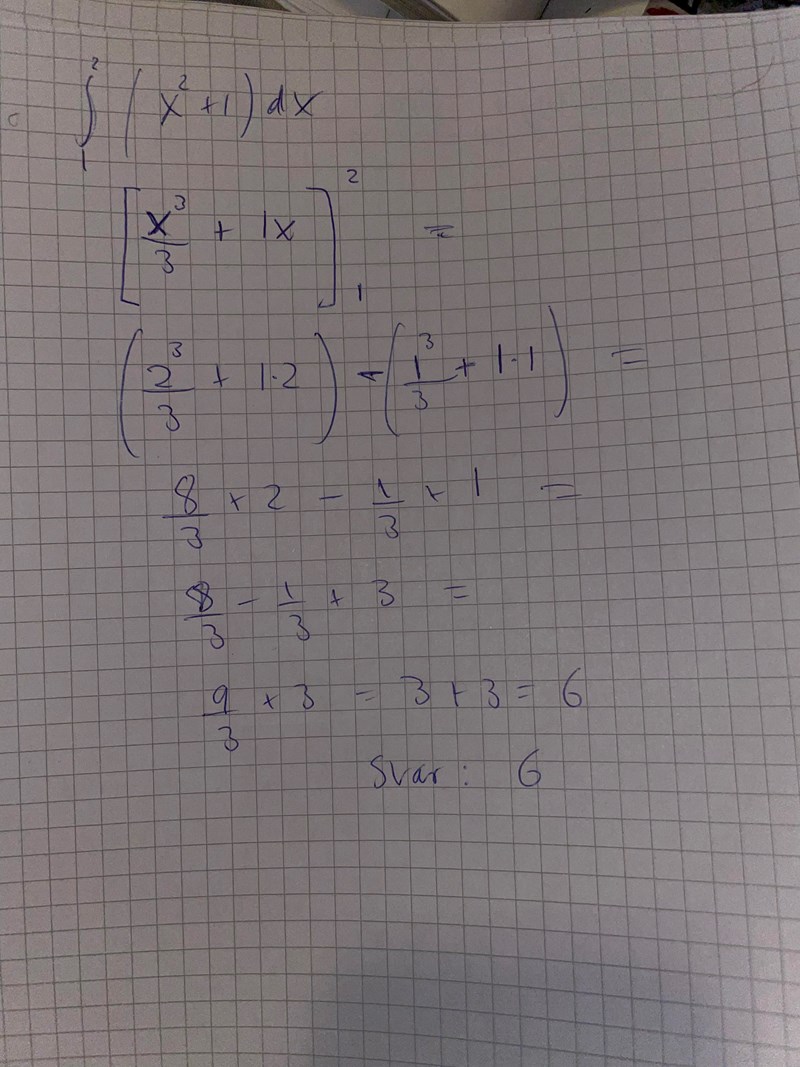 ∫₁² (x² + 1) dx
[x³/3 + 1x]₁² =
(2³/3 + 1·2) - (1³/3 + 1·1) =
8/3 + 2 - 1/3 + 1 =
8/3 - 1/3 + 3 =
9/3 + 3 = 3 + 3 = 6
Svar: 6